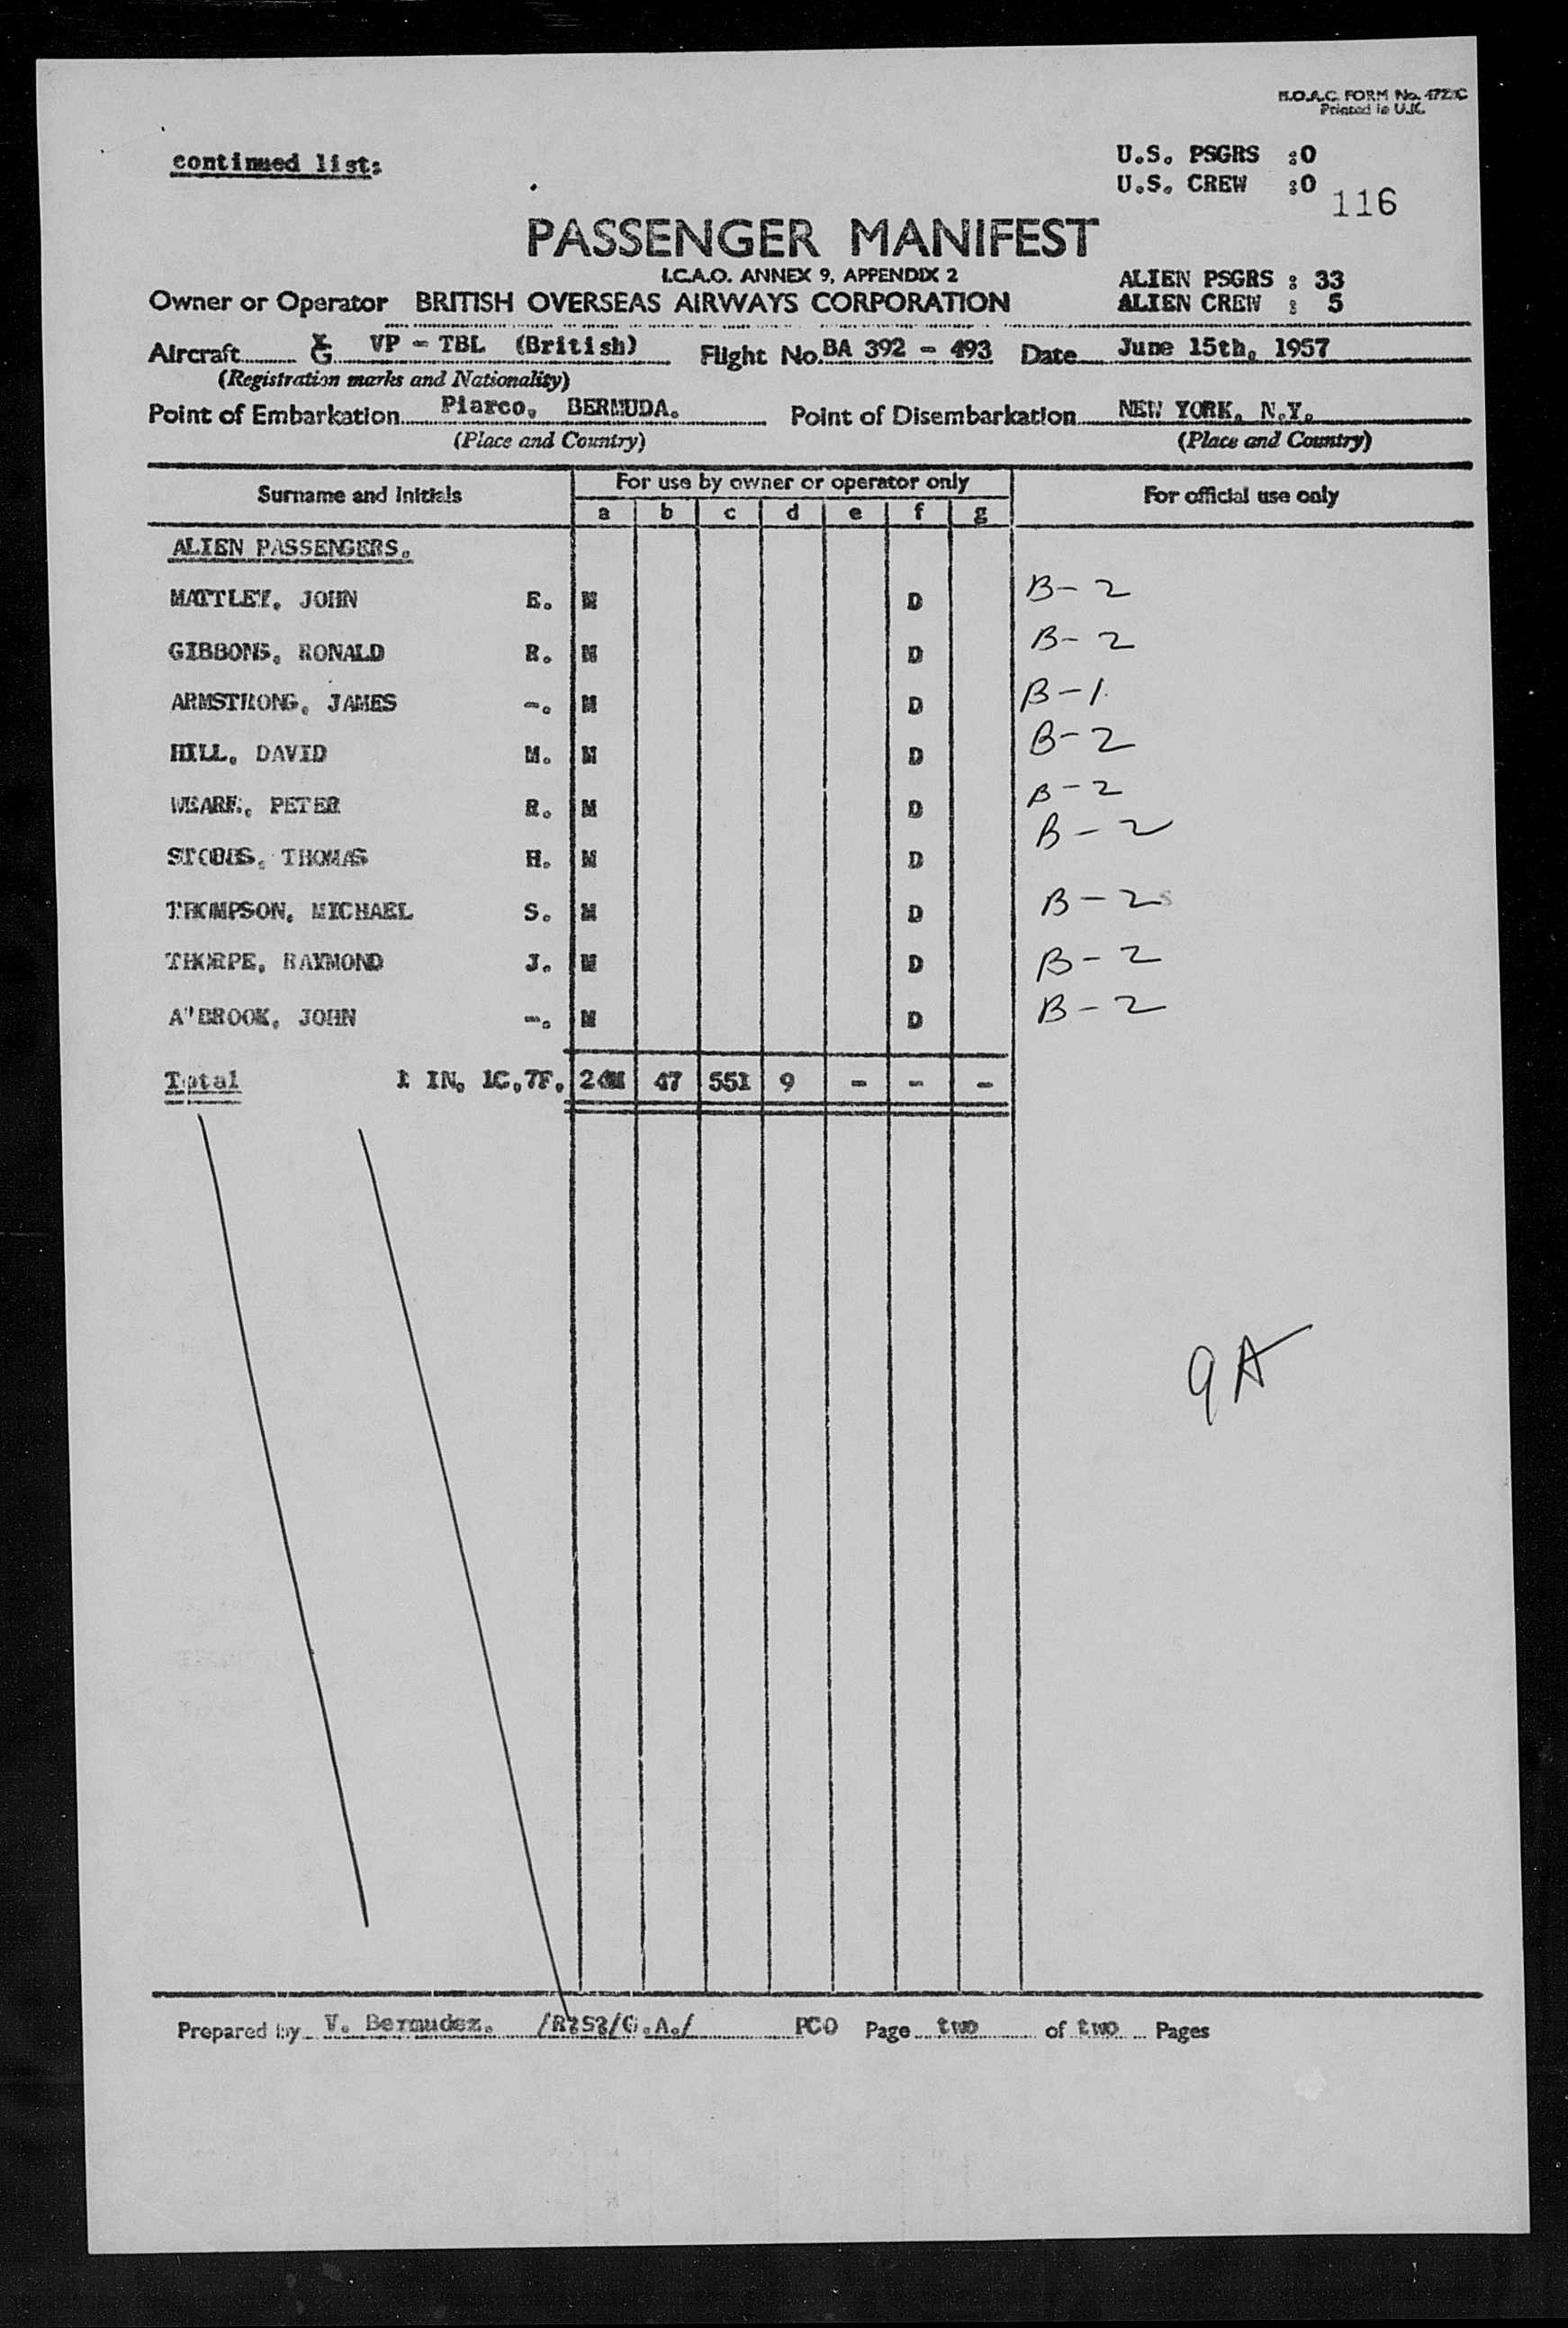 B.O.A.C. FORM No.
Printed in U.K.
continued list:
U.S. PSGRS :0
U.S. CREW :0
116
PASSENGER MANIFEST
I.C.A.O. ANNEX 9, APPENDIX 2
ALIEN PSGRS : 33
Owner or Operator BRITISH OVERSEAS AIRWAYS CORPORATION
ALIEN CREW : 5
Aircraft G VP - TBL (British) Flight No. BA 392 - 493 Date June 15th, 1957
(Registration marks and Nationality)
Point of Embarkation Piarco, BERMUDA. Point of Disembarkation NEW YORK, N.Y.
(Place and Country) (Place and Country)
Surname and Initials For use by owner or operator only For official use only
a b c d e f g
ALIEN PASSENGERS.
JOHN E. M D B-2
GIBBONS, RONALD R. M D B-2
ARMSTRONG, JAMES -. M D B-1
HILL, DAVID M. M D B-2
PETER R. M D B-2
STOBBS, THOMAS H. M D B-2
THOMPSON, MICHAEL S. M D B-2
THORPE, RAYMOND J. M D B-2
A'BROOK, JOHN -. M D B-2
Total 1 IN, 1C,7F. 47 551 9 - - -
9A
Prepared by V. Bermudez. PCO Page two of two Pages